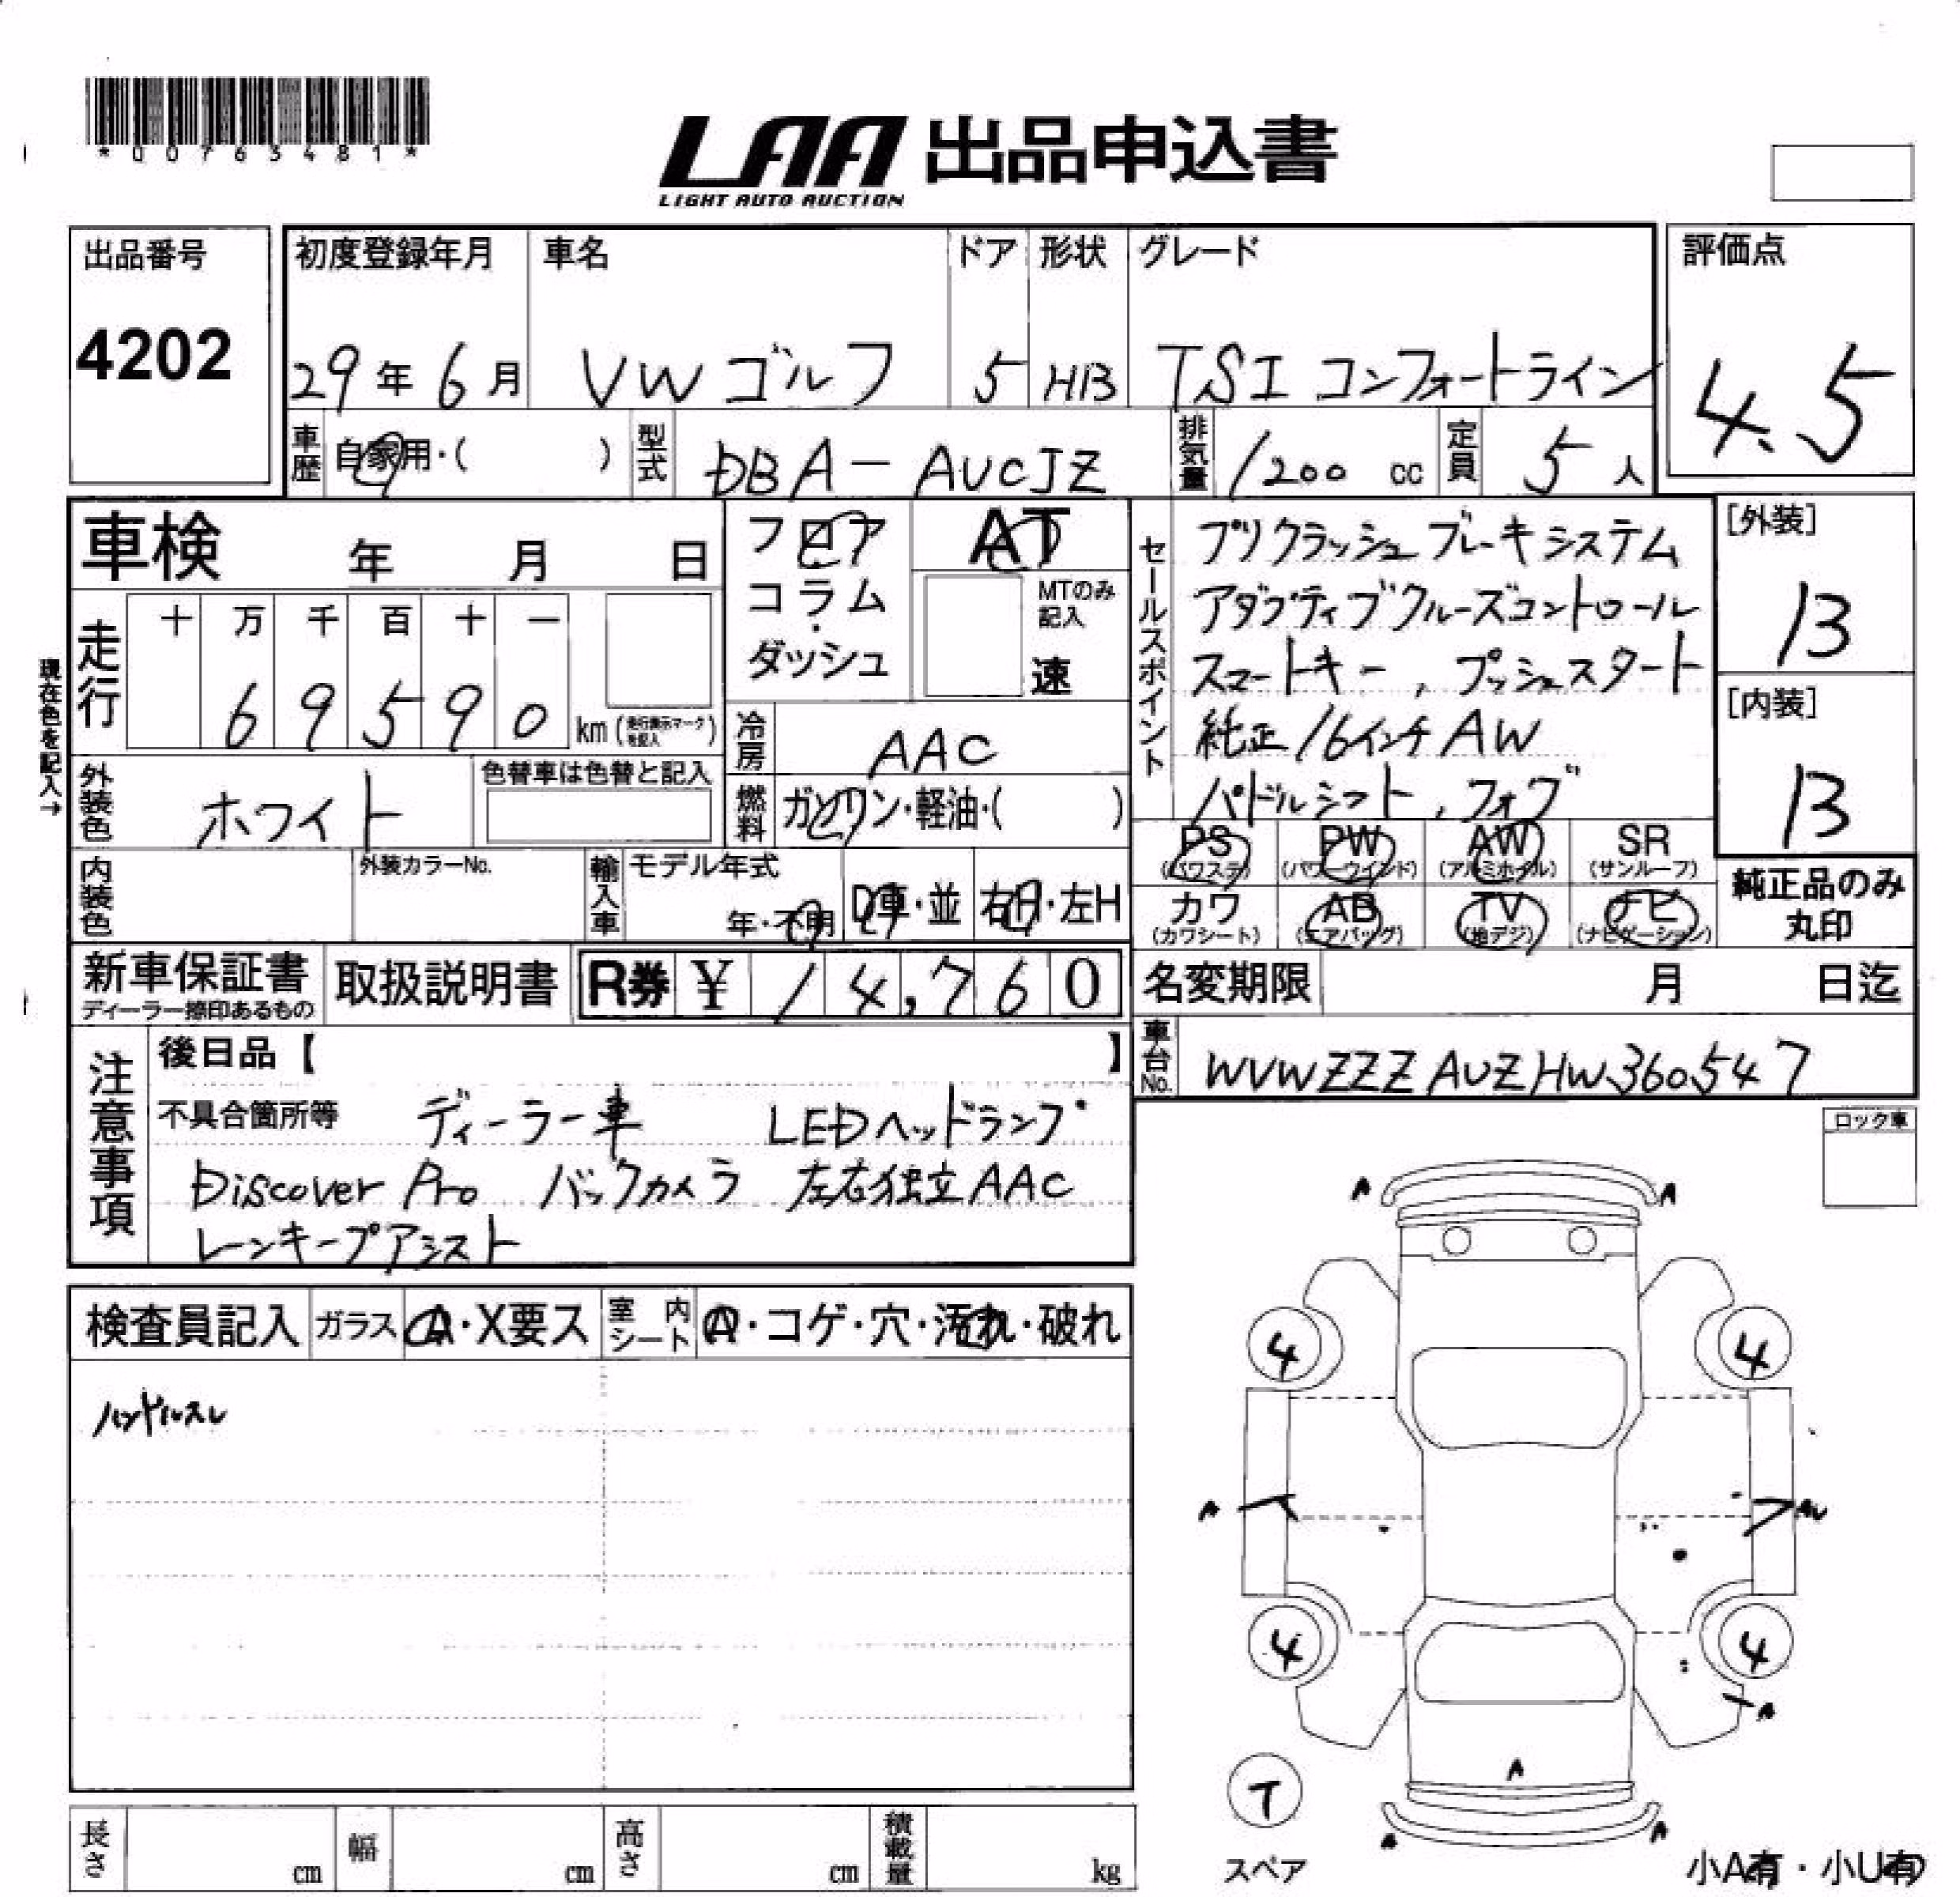 *00763481*
LAA 出品申込書
LIGHT AUTO AUCTION
出品番号
4202
初度登録年月 車名 ドア 形状 グレード
29年6月 VW ゴルフ 5 HB TSI コンフォートライン
評価点
4.5
車歴 自家用・( ) 型式 DBA-AUCJZ 排気量 1200 cc 定員 5人
車検 年 月 日
フロア・コラム・ダッシュ
AT
MTのみ記入
速
走行
十 万 千 百 十 一
6 9 5 9 0 km (走行表示マークを記入)
現在色を記入→
冷房 AAC
外装色 ホワイト 色替車は色替と記入
燃料 ガソリン・軽油・( )
内装色 外装カラーNo. 輸入車 モデル年式 年・不明 D車・並 右H・左H
セールスポイント
プリクラッシュブレーキシステム
アダプティブクルーズコントロール
スマートキー, プッシュスタート
純正16インチAW
パドルシフト, フォグ
[外装]
B
[内装]
B
PS (パワステ) PW (パワーウインド) AW (アルミホイル) SR (サンルーフ)
カワ (カワシート) AB (エアバッグ) TV (地デジ) ナビ (ナビゲーション)
純正品のみ丸印
新車保証書 ディーラー捺印あるもの 取扱説明書 R券 ¥ 14,760
名変期限 月 日迄
車台No. WVWZZZAUZHW360547
注意事項
後日品【 】
不具合箇所等 ディーラー車 LEDヘッドランプ
Discover Pro バックカメラ 左右独立AAC
レーンキープアシスト
ロック車
検査員記入 ガラス A・X要ス 室内シート A・コゲ・穴・汚れ・破れ
ハンドルスレ
A A
4 4
A AU
4 4
A
A
T
A A
スペア
小A有・小U有
長さ cm 幅 cm 高さ cm 積載量 kg